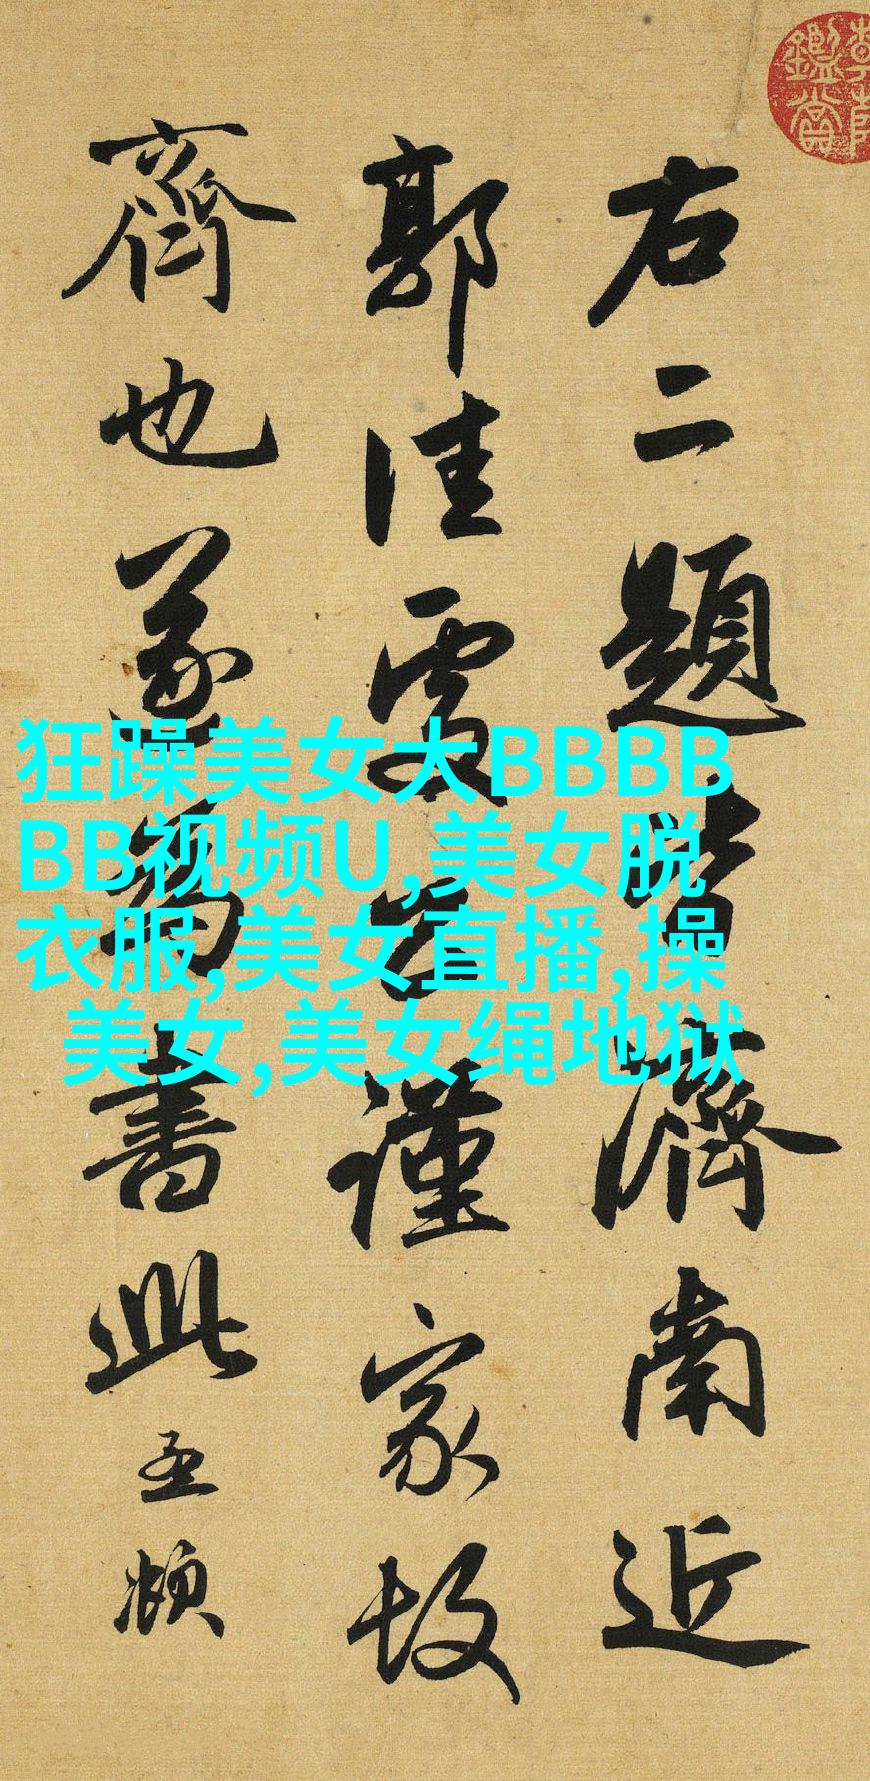 右二題皆濟南近
郭佳處公謹家故
齊也遂為書此孟頫
狂躁美女大BBBB
BB视频U,美女脱
衣服,美女直播,操
美女,美女绳地狱